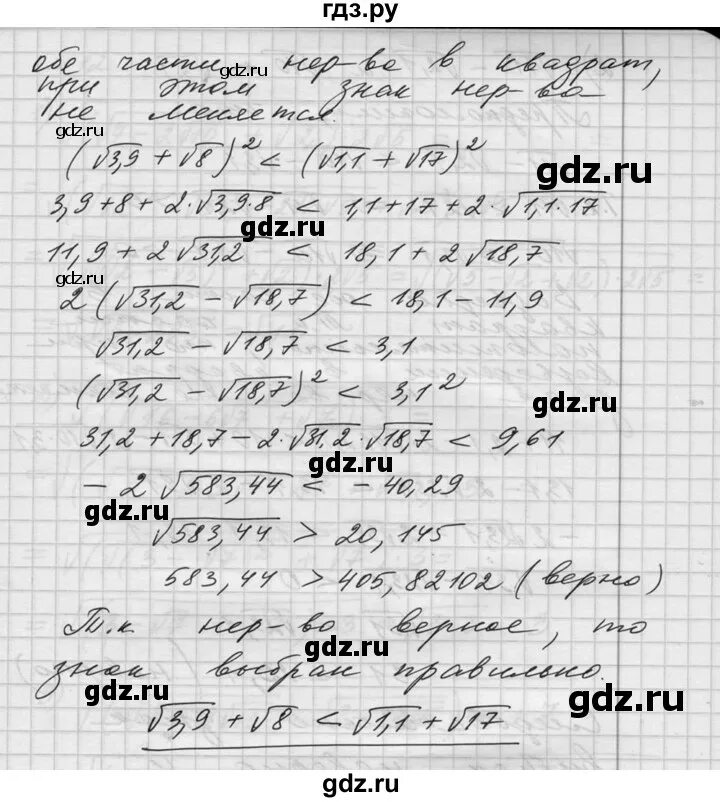 гдз.ру
обе части нер-ва в квадрат,
при этом знак нер-ва
не меняется.
(√3,9 + √8)² < (√1,1 + √17)²
gdz.ru
3,9 + 8 + 2·√3,9·8 < 1,1 + 17 + 2·√1,1·17
gdz.ru
11,9 + 2√31,2 < 18,1 + 2√18,7
2(√31,2 − √18,7) < 18,1 − 11,9
√31,2 − √18,7 < 3,1
gdz.ru
gdz.ru
(√31,2 − √18,7)² < 3,1²
31,2 + 18,7 − 2·√31,2·√18,7 < 9,61
gdz.ru
− 2√583,44 < − 40,29
gdz.ru
√583,44 > 20,145
583,44 > 405,82102 (верно)
Т.к нер-во верное, то
gdz.ru
знак выбран правильно.
gdz.ru
gdz.ru
√3,9 + √8 < √1,1 + √17
gdz.ru